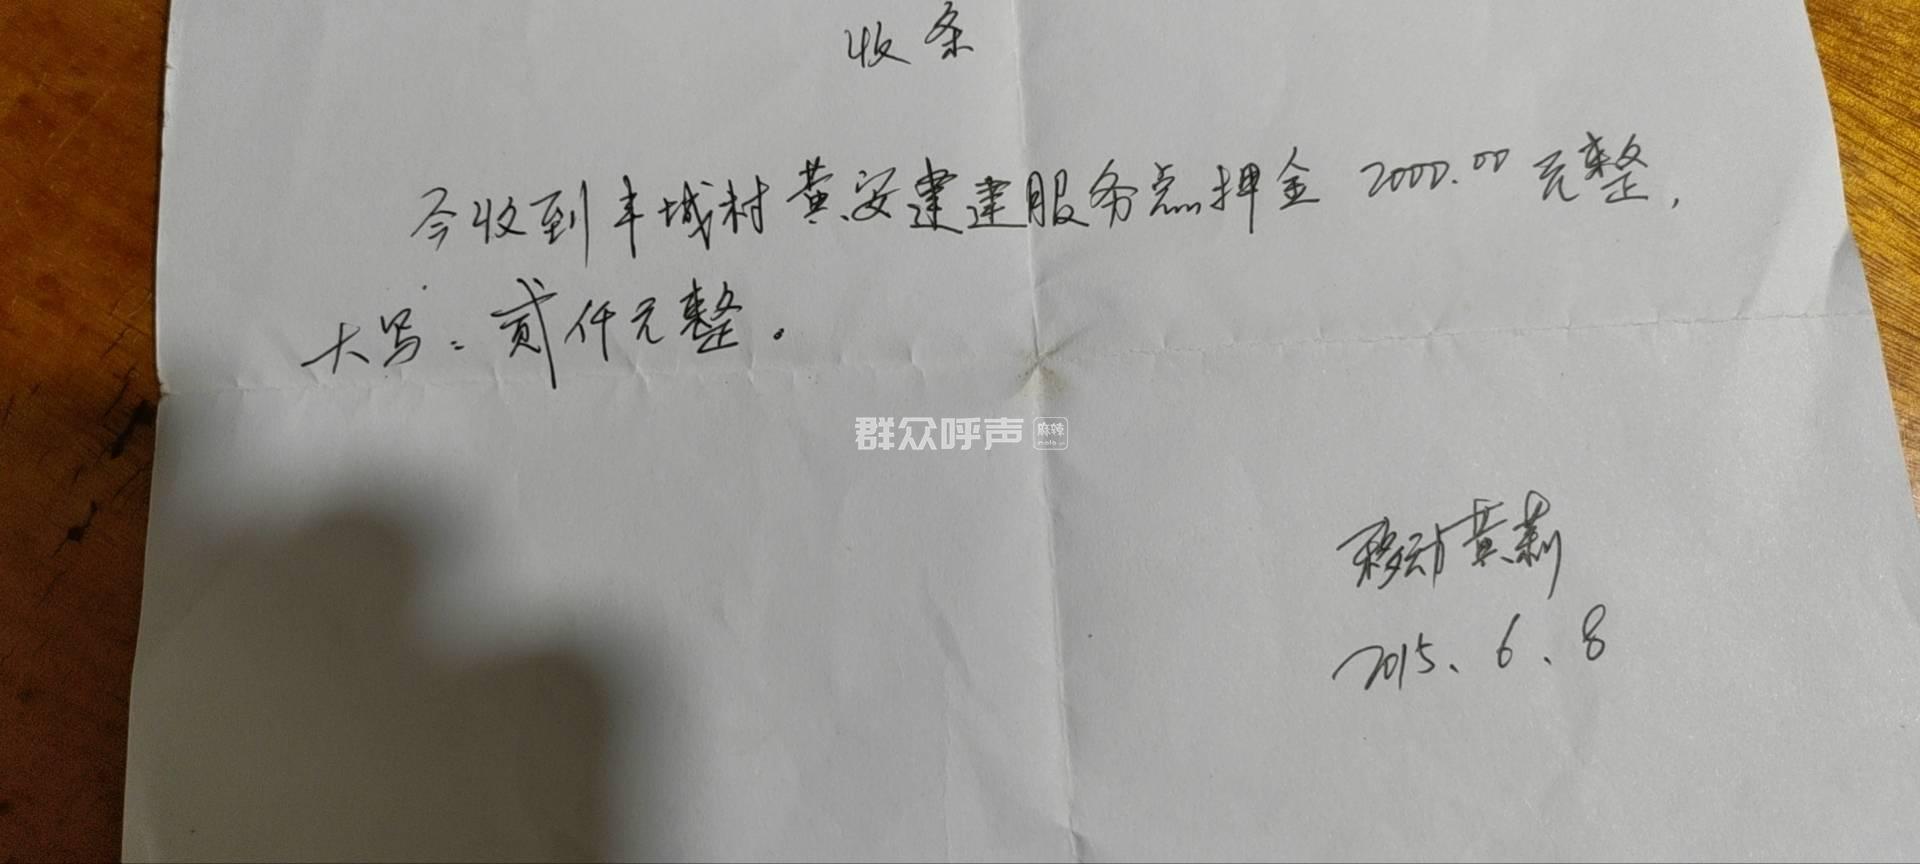 收条
今收到丰城村黄安建建服务点押金 2000.00 元整,
大写：贰仟元整。
群众呼声 麻辣
移动黄莉
2015、6、8